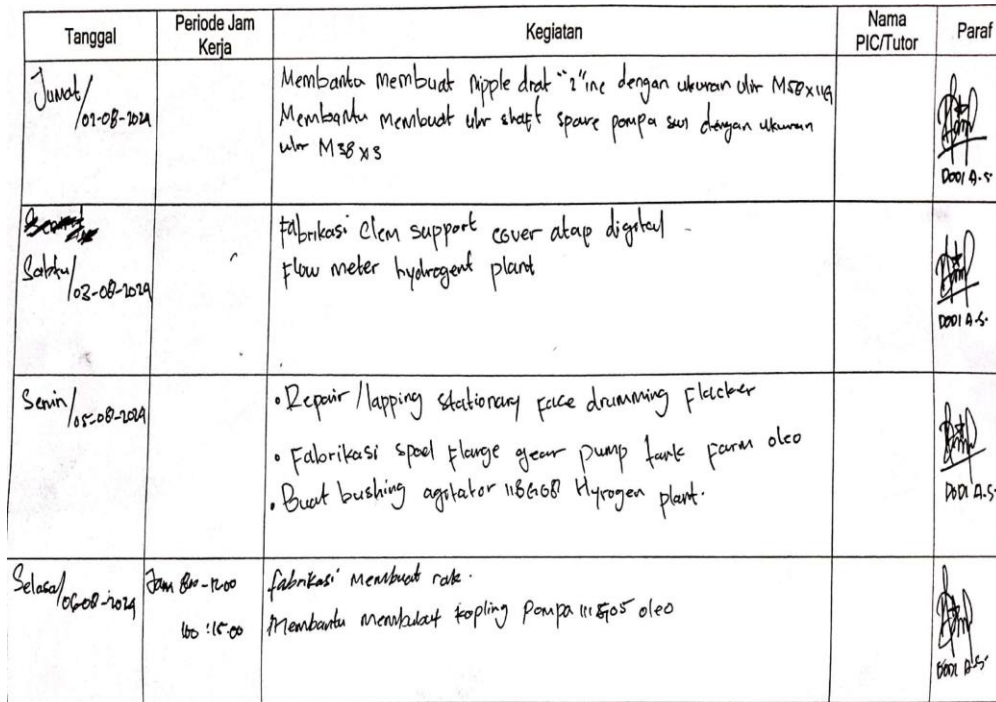 Tanggal
Periode Jam
Kerja
Kegiatan
Nama
PIC/Tutor
Paraf
Jumat/
02-08-2024
Membantu membuat nipple drat "2" inc dengan ukuran ulir
Membantu membuat ulir shaft spare pompa dengan ukuran
ulir M38 x 3
DODI A.S.
Sabtu/
03-08-2024
Fabrikasi Clem support cover atap digital
Flow meter hydrogent plant
DODI A.S.
Senin/
05-08-2024
• Repair / lapping stationary face drumming Flacker
• Fabrikasi spool Flange gear pump tank Farm oleo
• Buat bushing agitator Hyrogen plant.
DODI A.S.
Selasa/
06-08-2024
Jam
15.00
fabrikasi Membuat rak.
Membantu kopling Pompa oleo
DODI A.S.